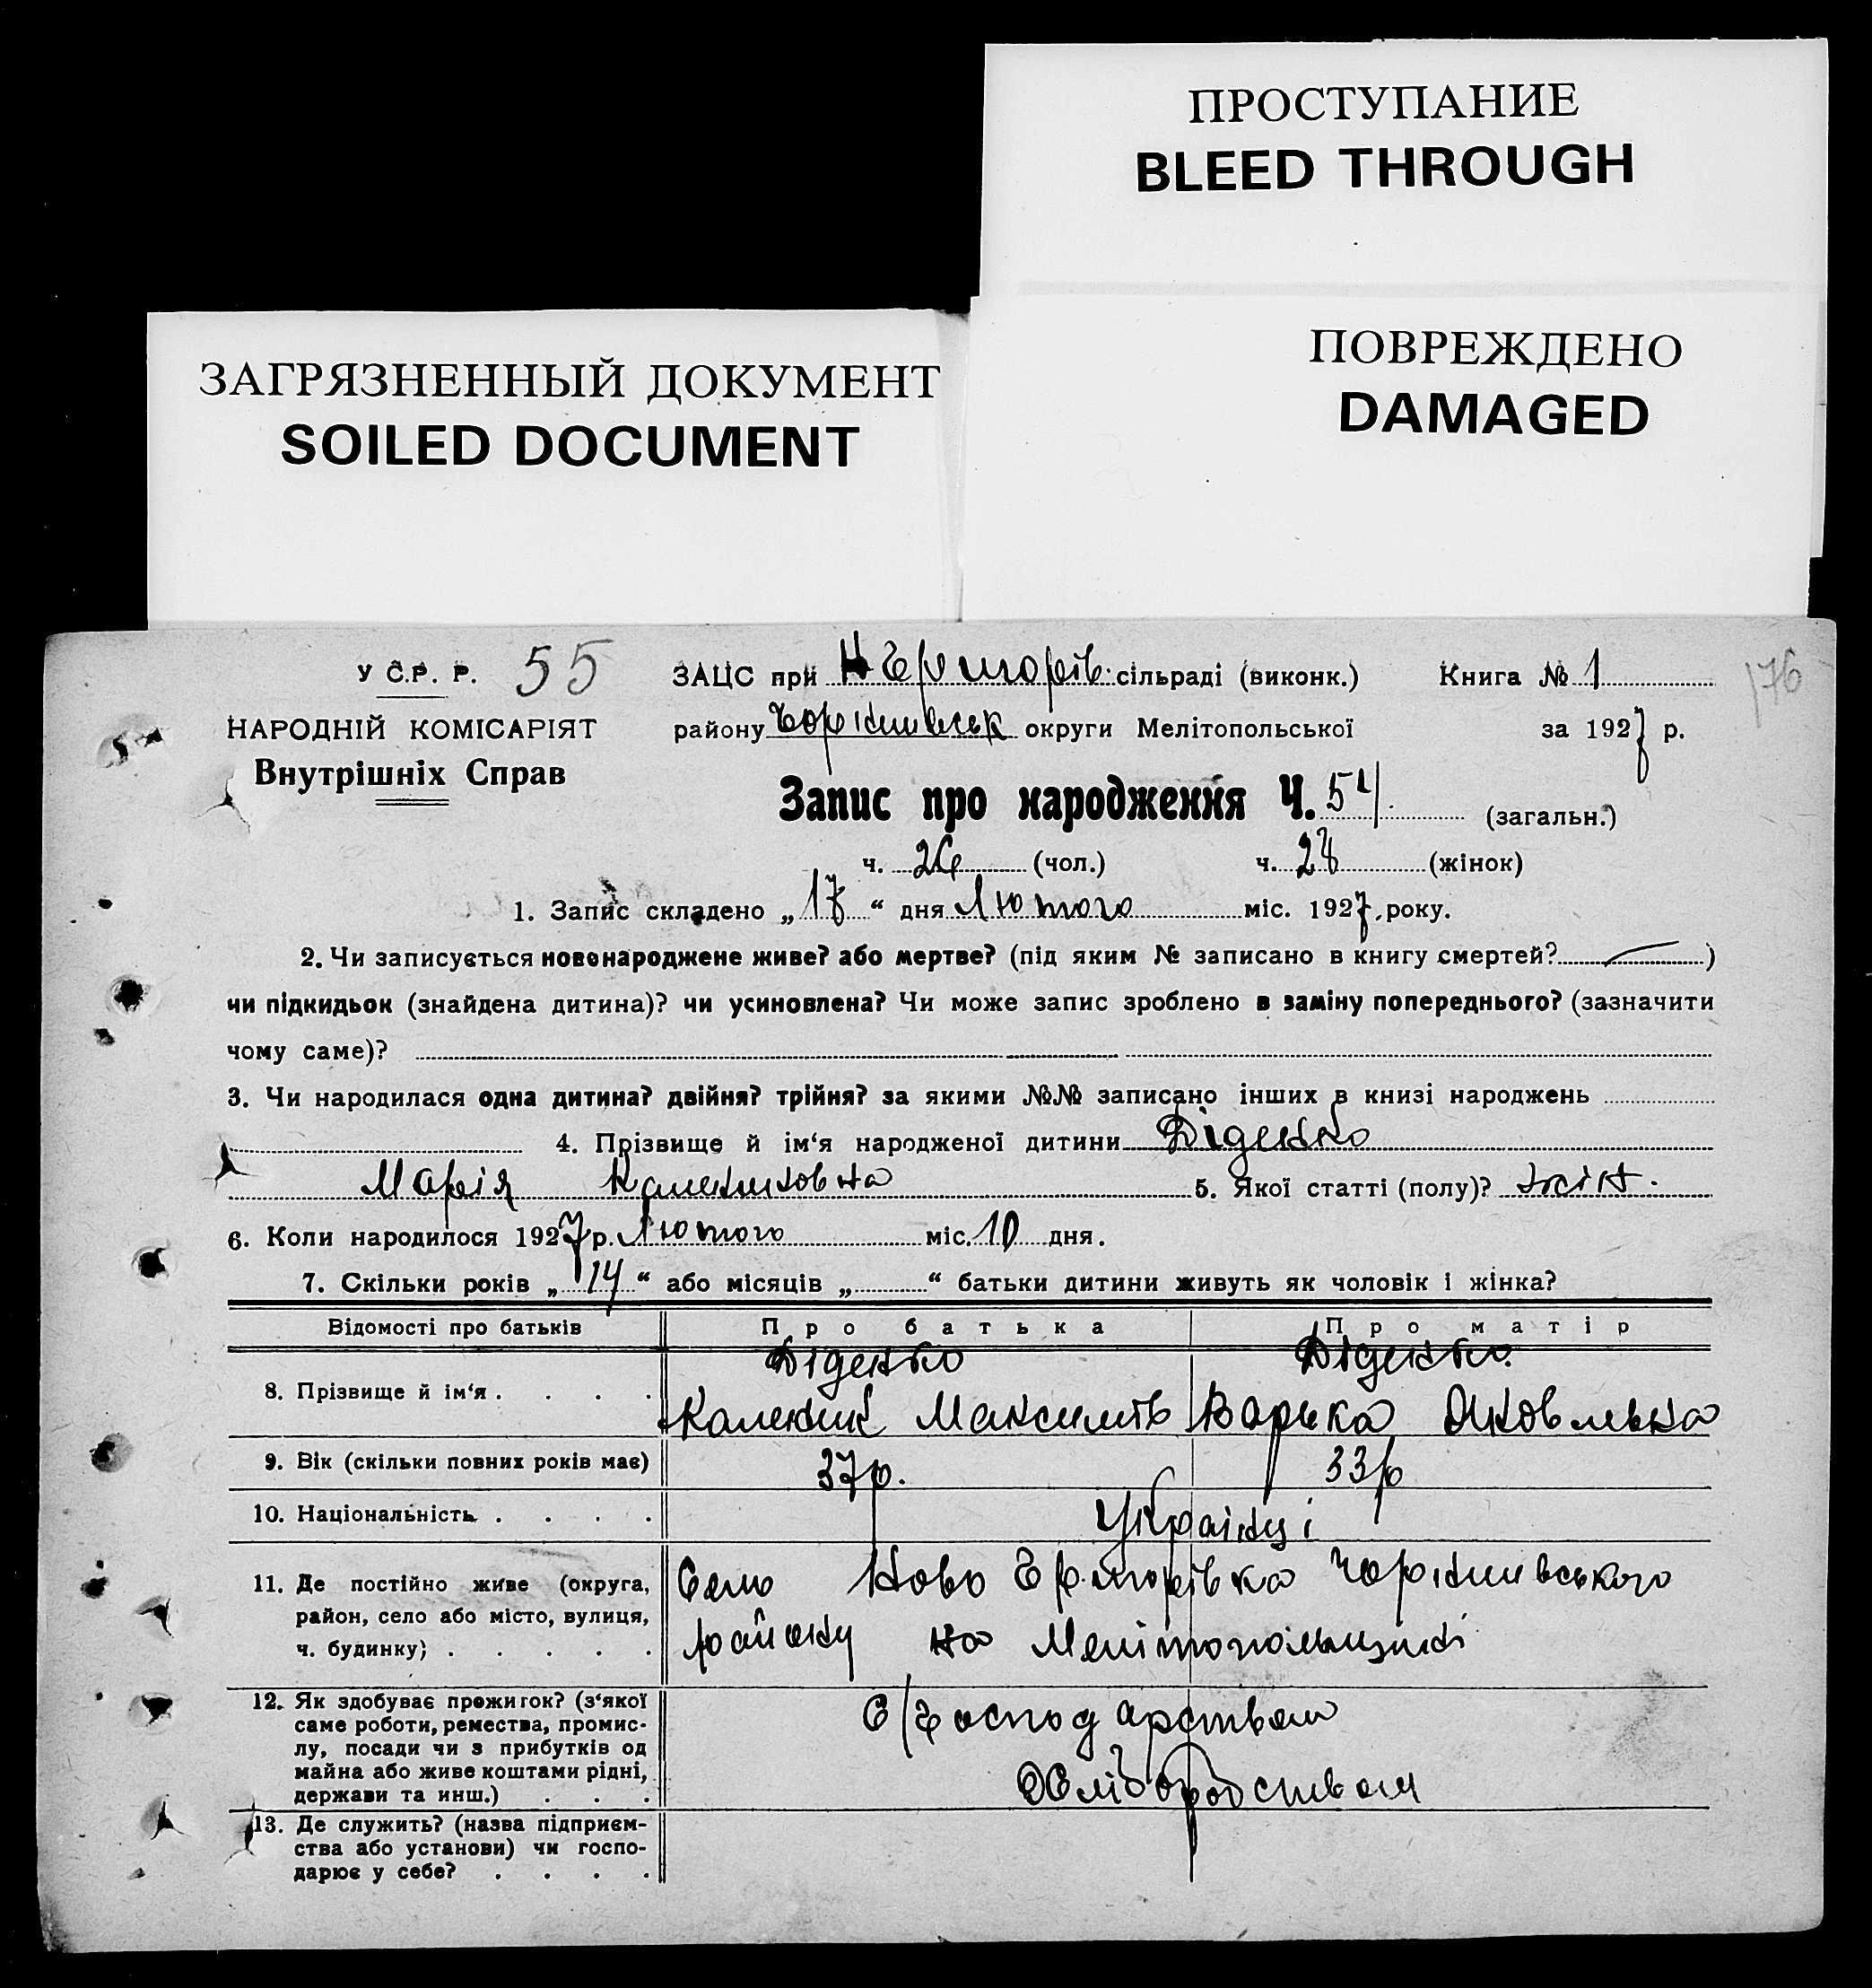 ПРОСТУПАНИЕ
BLEED THROUGH
ПОВРЕЖДЕНО
DAMAGED
ЗАГРЯЗНЕННЫЙ ДОКУМЕНТ
SOILED DOCUMENT
У С.Р. Р. 55
НАРОДНІЙ КОМІСАРІЯТ
Внутрішніх Справ
ЗАЦС при сільраді (виконк.) Книга № 1
176
району округи Мелітопольської за 1927 р.
Запис про народження Ч. 54 (загальн.)
ч. 26 (чол.) ч. 28 (жінок)
1. Запис складено „ 17 “ дня Лютого міс. 1927, року.
2. Чи записується новонароджене живе? або мертве? (під яким № записано в книгу смертей? )
чи підкидьок (знайдена дитина)? чи усиновлена? Чи може запис зроблено в заміну попереднього? (зазначити
чому саме)?
3. Чи народилася одна дитина? двійня? трійня? за якими №№ записано інших в книзі народжень
4. Прізвище й ім‘я народженої дитини Діденко
Марія 5. Якої статті (полу)? жін.
6. Коли народилося 1927 р. Лютого міс. 10 дня.
7. Скільки років „ 14 “ або місяців „ “ батьки дитини живуть як чоловік і жінка?
Відомості про батьків Про батька Про матір
Діденко Діденко
8. Прізвище й ім‘я . . . . Каленик Максимів Варька Яковлевна
9. Вік (скільки повних років має) 37 р. 33 р
10. Національність . . . . Українці
11. Де постійно живе (округа, Село Ново Чорінивського
район, село або місто, вулиця,
ч. будинку) . . . . . району на Мелітопольщині
12. Як здобуває прожиток? (з‘якої
саме роботи, ремества, промис- С/господарством
лу, посади чи з прибутків од
майна або живе коштами рідні,
держави та инш.) . . . Хліборобством
13. Де служить? (назва підприєм-
ства або установи) чи госпо-
дарює у себе? . . . .